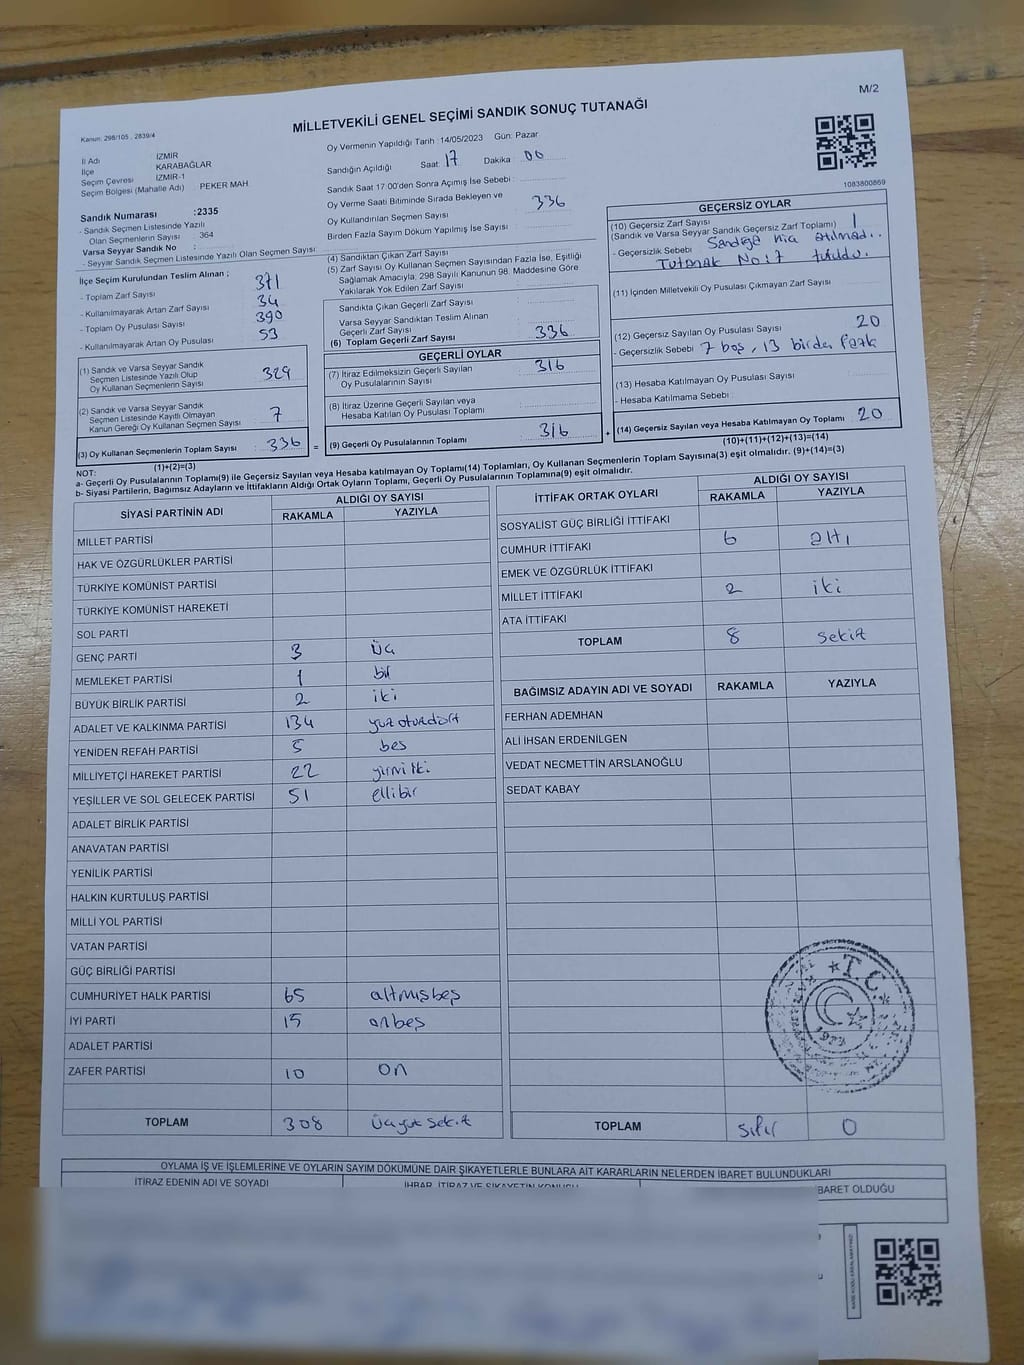 M/2
MİLLETVEKİLİ GENEL SEÇİMİ SANDIK SONUÇ TUTANAĞI
Kanun: 298/105 , 2839/4
İl Adı İZMİR
İlçe KARABAĞLAR
Seçim Çevresi İZMİR-1
Seçim Bölgesi (Mahalle Adı) PEKER MAH.
Sandık Numarası :2335
- Sandık Seçmen Listesinde Yazılı
Olan Seçmenlerin Sayısı : 364
Varsa Seyyar Sandık No :
- Seyyar Sandık Seçmen Listesinde Yazılı Olan Seçmen Sayısı:
Oy Vermenin Yapıldığı Tarih :14/05/2023 Gün: Pazar
Sandığın Açıldığı Saat 17 Dakika : 00
Sandık Saat 17 00'den Sonra Açımış İse Sebebi :
Oy Verme Saati Bitiminde Sırada Bekleyen ve
Oy Kullandırılan Seçmen Sayısı : 336
Birden Fazla Sayım Döküm Yapılmış İse Sayısı :
1083800869
İlçe Seçim Kurulundan Teslim Alınan ;
- Toplam Zarf Sayısı : 371
- Kullanılmayarak Artan Zarf Sayısı : 34
- Toplam Oy Pusulası Sayısı : 390
- Kullanılmayarak Artan Oy Pusulası : 53
(1) Sandık ve Varsa Seyyar Sandık
Seçmen Listesinde Yazılı Olup
Oy Kullanan Seçmenlerin Sayısı : 329
(2) Sandık ve Varsa Seyyar Sandık
Seçmen Listesinde Kayıtlı Olmayan
Kanun Gereği Oy Kullanan Seçmen Sayısı : 7
(3) Oy Kullanan Seçmenlerin Toplam Sayısı : 336 =
(1)+(2)=(3)
(4) Sandıktan Çıkan Zarf Sayısı
(5) Zarf Sayısı Oy Kullanan Seçmen Sayısından Fazla İse, Eşitliği
Sağlamak Amacıyla, 298 Sayılı Kanunun 98. Maddesine Göre
Yakılarak Yok Edilen Zarf Sayısı :
Sandıkta Çıkan Geçerli Zarf Sayısı :
Varsa Seyyar Sandıktan Teslim Alınan
Geçerli Zarf Sayısı :
(6) Toplam Geçerli Zarf Sayısı : 336
GEÇERLİ OYLAR
(7) İtiraz Edilmeksizin Geçerli Sayılan
Oy Pusulalarının Sayısı : 316
(8) İtiraz Üzerine Geçerli Sayılan veya
Hesaba Katılan Oy Pusulası Toplamı :
(9) Geçerli Oy Pusulalarının Toplamı : 316 +
GEÇERSİZ OYLAR
(10) Geçersiz Zarf Sayısı
(Sandık ve Varsa Seyyar Sandık Geçersiz Zarf Toplamı) : 1
- Geçersizlik Sebebi : Sandığa hiç atılmadı..
Tutanak No:7 tutuldu.
(11) İçinden Milletvekili Oy Pusulası Çıkmayan Zarf Sayısı
(12) Geçersiz Sayılan Oy Pusulası Sayısı : 20
- Geçersizlik Sebebi : 7 boş, 13 birden fazla
(13) Hesaba Katılmayan Oy Pusulası Sayısı :
- Hesaba Katılmama Sebebi :
(14) Geçersiz Sayılan veya Hesaba Katılmayan Oy Toplamı : 20
(10)+(11)+(12)+(13)=(14)
NOT:
a- Geçerli Oy Pusulalarının Toplamı(9) ile Geçersiz Sayılan veya Hesaba katılmayan Oy Toplamı(14) Toplamları, Oy Kullanan Seçmenlerin Toplam Sayısına(3) eşit olmalıdır. (9)+(14)=(3)
b- Siyasi Partilerin, Bağımsız Adayların ve İttifakların Aldığı Ortak Oyların Toplamı, Geçerli Oy Pusulalarının Toplamına(9) eşit olmalıdır.
SİYASİ PARTİNİN ADI ALDIĞI OY SAYISI
RAKAMLA YAZIYLA
MİLLET PARTİSİ
HAK VE ÖZGÜRLÜKLER PARTİSİ
TÜRKİYE KOMÜNİST PARTİSİ
TÜRKİYE KOMÜNİST HAREKETİ
SOL PARTİ
GENÇ PARTİ 3 üç
MEMLEKET PARTİSİ 1 bir
BÜYÜK BİRLİK PARTİSİ 2 iki
ADALET VE KALKINMA PARTİSİ 134 yüz otuzdört
YENİDEN REFAH PARTİSİ 5 beş
MİLLİYETÇİ HAREKET PARTİSİ 22 yirmi iki
YEŞİLLER VE SOL GELECEK PARTİSİ 51 ellibir
ADALET BİRLİK PARTİSİ
ANAVATAN PARTİSİ
YENİLİK PARTİSİ
HALKIN KURTULUŞ PARTİSİ
MİLLİ YOL PARTİSİ
VATAN PARTİSİ
GÜÇ BİRLİĞİ PARTİSİ
CUMHURİYET HALK PARTİSİ 65 altmışbeş
İYİ PARTİ 15 onbeş
ADALET PARTİSİ
ZAFER PARTİSİ 10 on
TOPLAM 308 üçyüz sekiz
İTTİFAK ORTAK OYLARI ALDIĞI OY SAYISI
RAKAMLA YAZIYLA
SOSYALİST GÜÇ BİRLİĞİ İTTİFAKI
CUMHUR İTTİFAKI 6 altı
EMEK VE ÖZGÜRLÜK İTTİFAKI
MİLLET İTTİFAKI 2 iki
ATA İTTİFAKI
TOPLAM 8 sekiz
BAĞIMSIZ ADAYIN ADI VE SOYADI RAKAMLA YAZIYLA
FERHAN ADEMHAN
ALİ İHSAN ERDENİLGEN
VEDAT NECMETTİN ARSLANOĞLU
SEDAT KABAY
TOPLAM sıfır 0
T.C.
OYLAMA İŞ VE İŞLEMLERİNE VE OYLARIN SAYIM DÖKÜMÜNE DAİR ŞİKAYETLERLE BUNLARA AİT KARARLARIN NELERDEN İBARET BULUNDUKLARI
İTİRAZ EDENİN ADI VE SOYADI İHBAR, İTİRAZ VE ŞİKAYETİN KONUSU BARET OLDUĞU